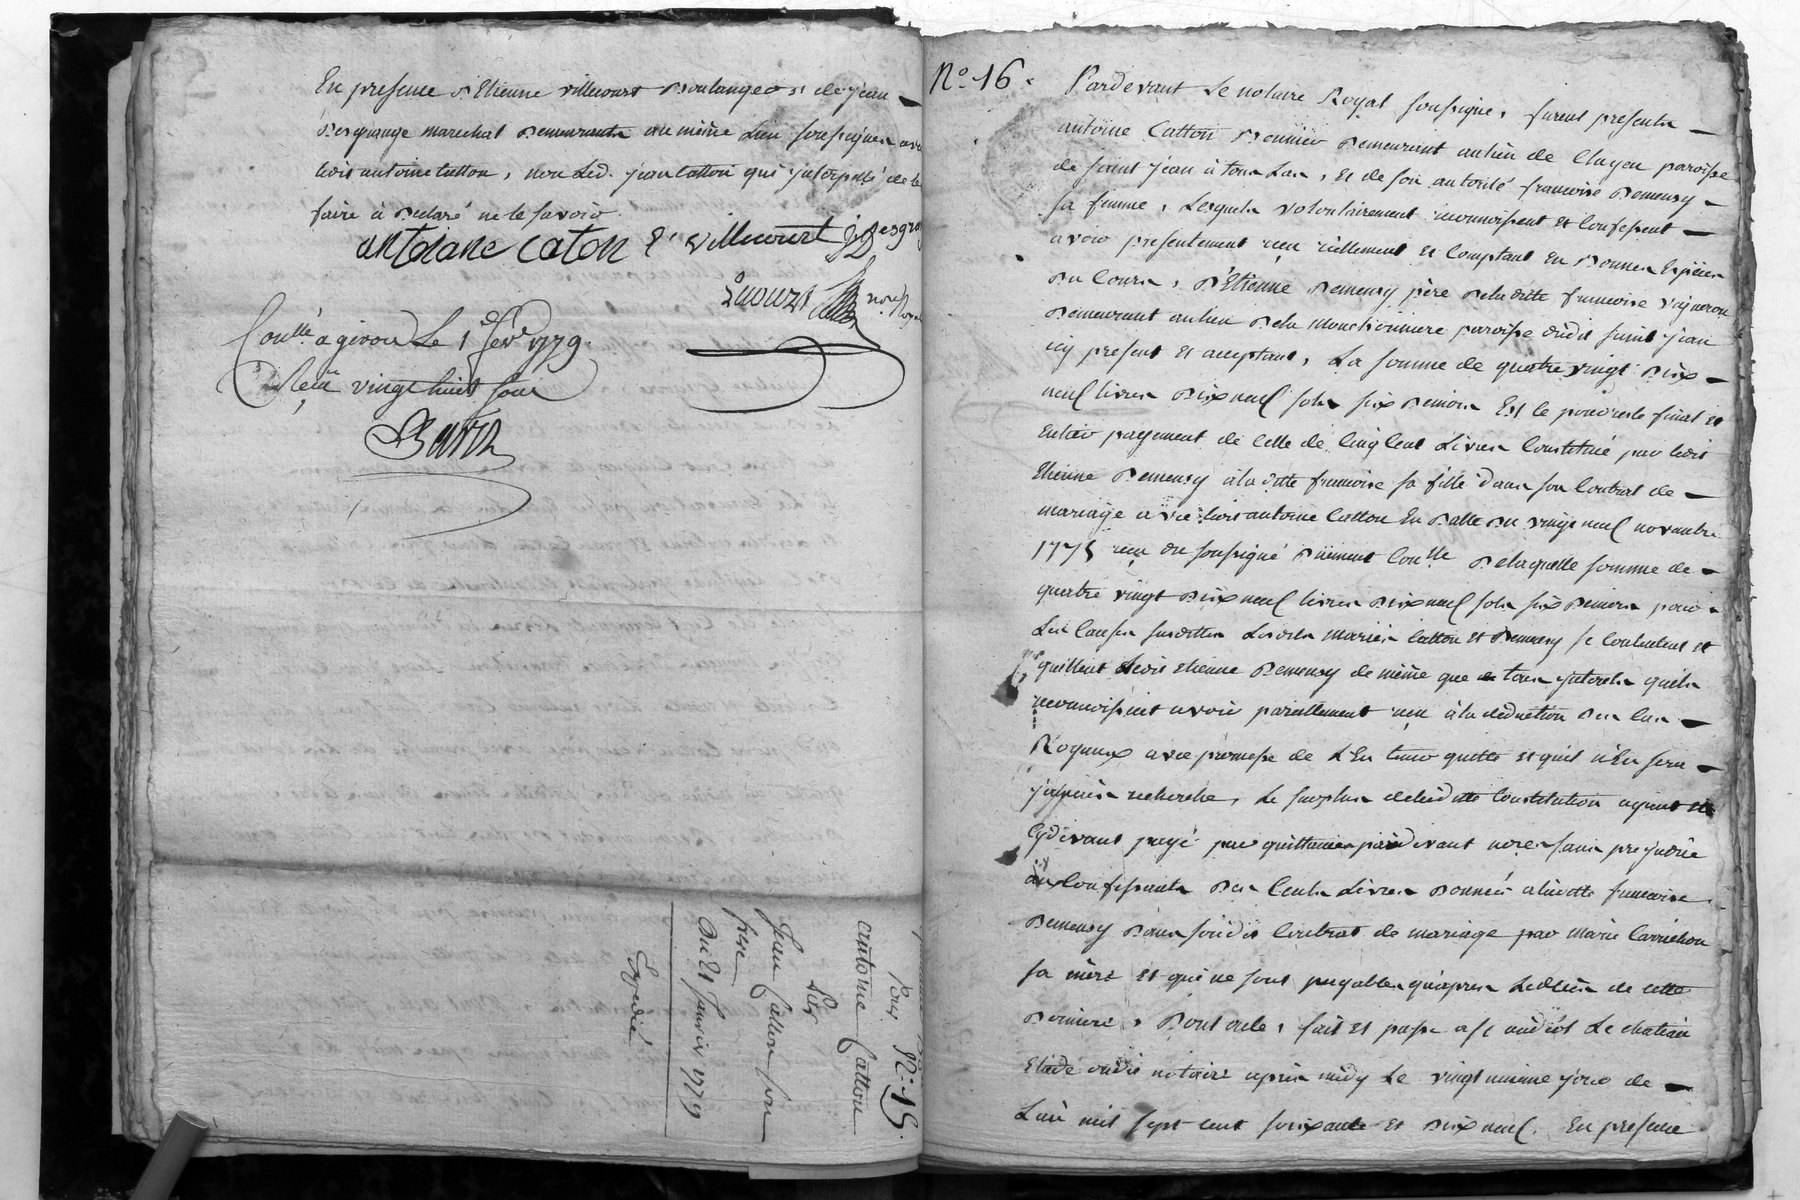 En presence d'Etienne villecourt Boulanger et de jean
Desgrange marechal demeurants au même Lieu soussignés avec
ledit antoine catton, non Led. jean catton qui jnterpellé de le
faire a declaré ne le savoir
antoiane caton E villecourt J Desgran
no.re Royal
Conllé a givors Le 1 fév. 1779.
Reçu vingt huit sous
Barth
Prix 92:15.
antoine Catton
Sur
Jean Catton son
frere
Du 21 Janvier 1779
Expedié
N.º 16.
Pardevant Le notaire Royal soussigné, furent presents
antoine Catton demeurant au lieu de paroisse
de saint jean à touslas, et de son autorité francoise Demeusy
sa femme, Lesquels volontairement reconnoissent et confessent
avoir presentement reçu réellement et comptant En Bonnes Espèces
Du Cours, d'Etienne Demeusy père Deladitte francoise vigneron
Demeurant au lieu Dela paroisse dudit saint jean
icy present et acceptant, La somme de quatre vingt Dix
neuf livres Dix neuf sols six Deniers Et le pour reste final et
Entier payement de celle de Cinq Cent Livres Constitué par ledit
Etienne Demeusy à laditte francoise sa fille dans son Contrat de
mariage avec ledit antoine Catton En Datte Du vingt neuf novembre
1775 reçu du soussigné Duement Con.llé Delaquelle somme de
quatre vingt Dix neuf livres Dix neuf sols six Deniers pour
Les Causes susdittes Lesdits mariés Catton et Demeusy se Contentent et
quittent Ledit Etienne Demeusy de même que de tous jnterets quils
reconnoissent avoir pareillement reçu à la deduction Des Cas
Royaux avec promesse de L'En tenir quitte et quil n'En sera
jamais recherché, Le surplus de laditte Constitution ayant été
Cydevant payé par quittances pardevant no.re sans prejudice
aux Confessants Des Cents Livres Donnés à laditte francoise
Demeusy Dans sondit Contrat de mariage par marie Carrichon
sa mère et qui ne sont payables quaprès Ledécès de cette
Derniere, Dont acte, fait et passé a
Etude dudit notaire après midy Le vingt unième jour de
L'an mil sept cent soixante et Dix neuf. En presence